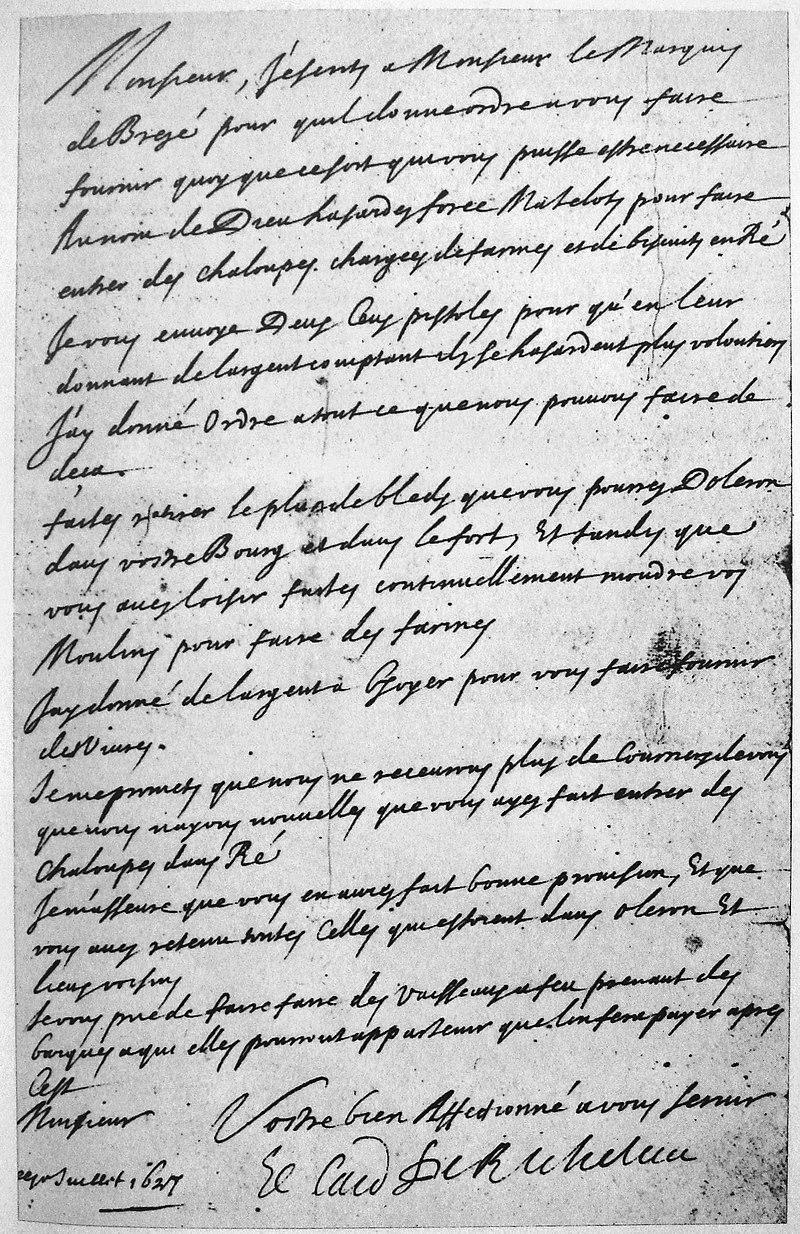 Monsieur, J'escris a Monsieur le Marquis
de Brezé pour quil donne ordre a vous faire
fournir quoy que ce soit qui vous puisse estre necessaire
Au nom de Dieu hasardes force Matelots pour faire
entrer des chaloupes chargees de farines et de biscuits en Ré
Je vous envoye Deux Cens pistoles pour qu'en leur
donnant de largent comptant ils se hasardent plus volontiers
J'ay donné Ordre a tout ce que nous pouvons faire de
deca.
faites retirer le plus de bleds que vous pourres Doleron
dans vostre Bourg et dans le fort, Et tandis que
vous aves loisir faites continuellement moudre vos
Moulins pour faire des farines
Jay donné de largent a pour vous faire fournir
des Vivres.
Je me promets que nous ne recevrons plus de Courriers de vous
que nous nayons nouvelles que vous ayes fait entrer des
chaloupes dans Ré
Je m'asseure que vous en aures fait bonne provision, Et que
vous aves retenu toutes Celles qui estoient dans oleron Et
lieux voisins
Je vous prie de faire faire des vaisseaux a feu prenant des
barques a qui elles pourront appartenir que l'on fera payer apres
Cest
Monsieur
Vostre bien Affectionné a vous servir
Le Card De Richelieu
Juillet 1627